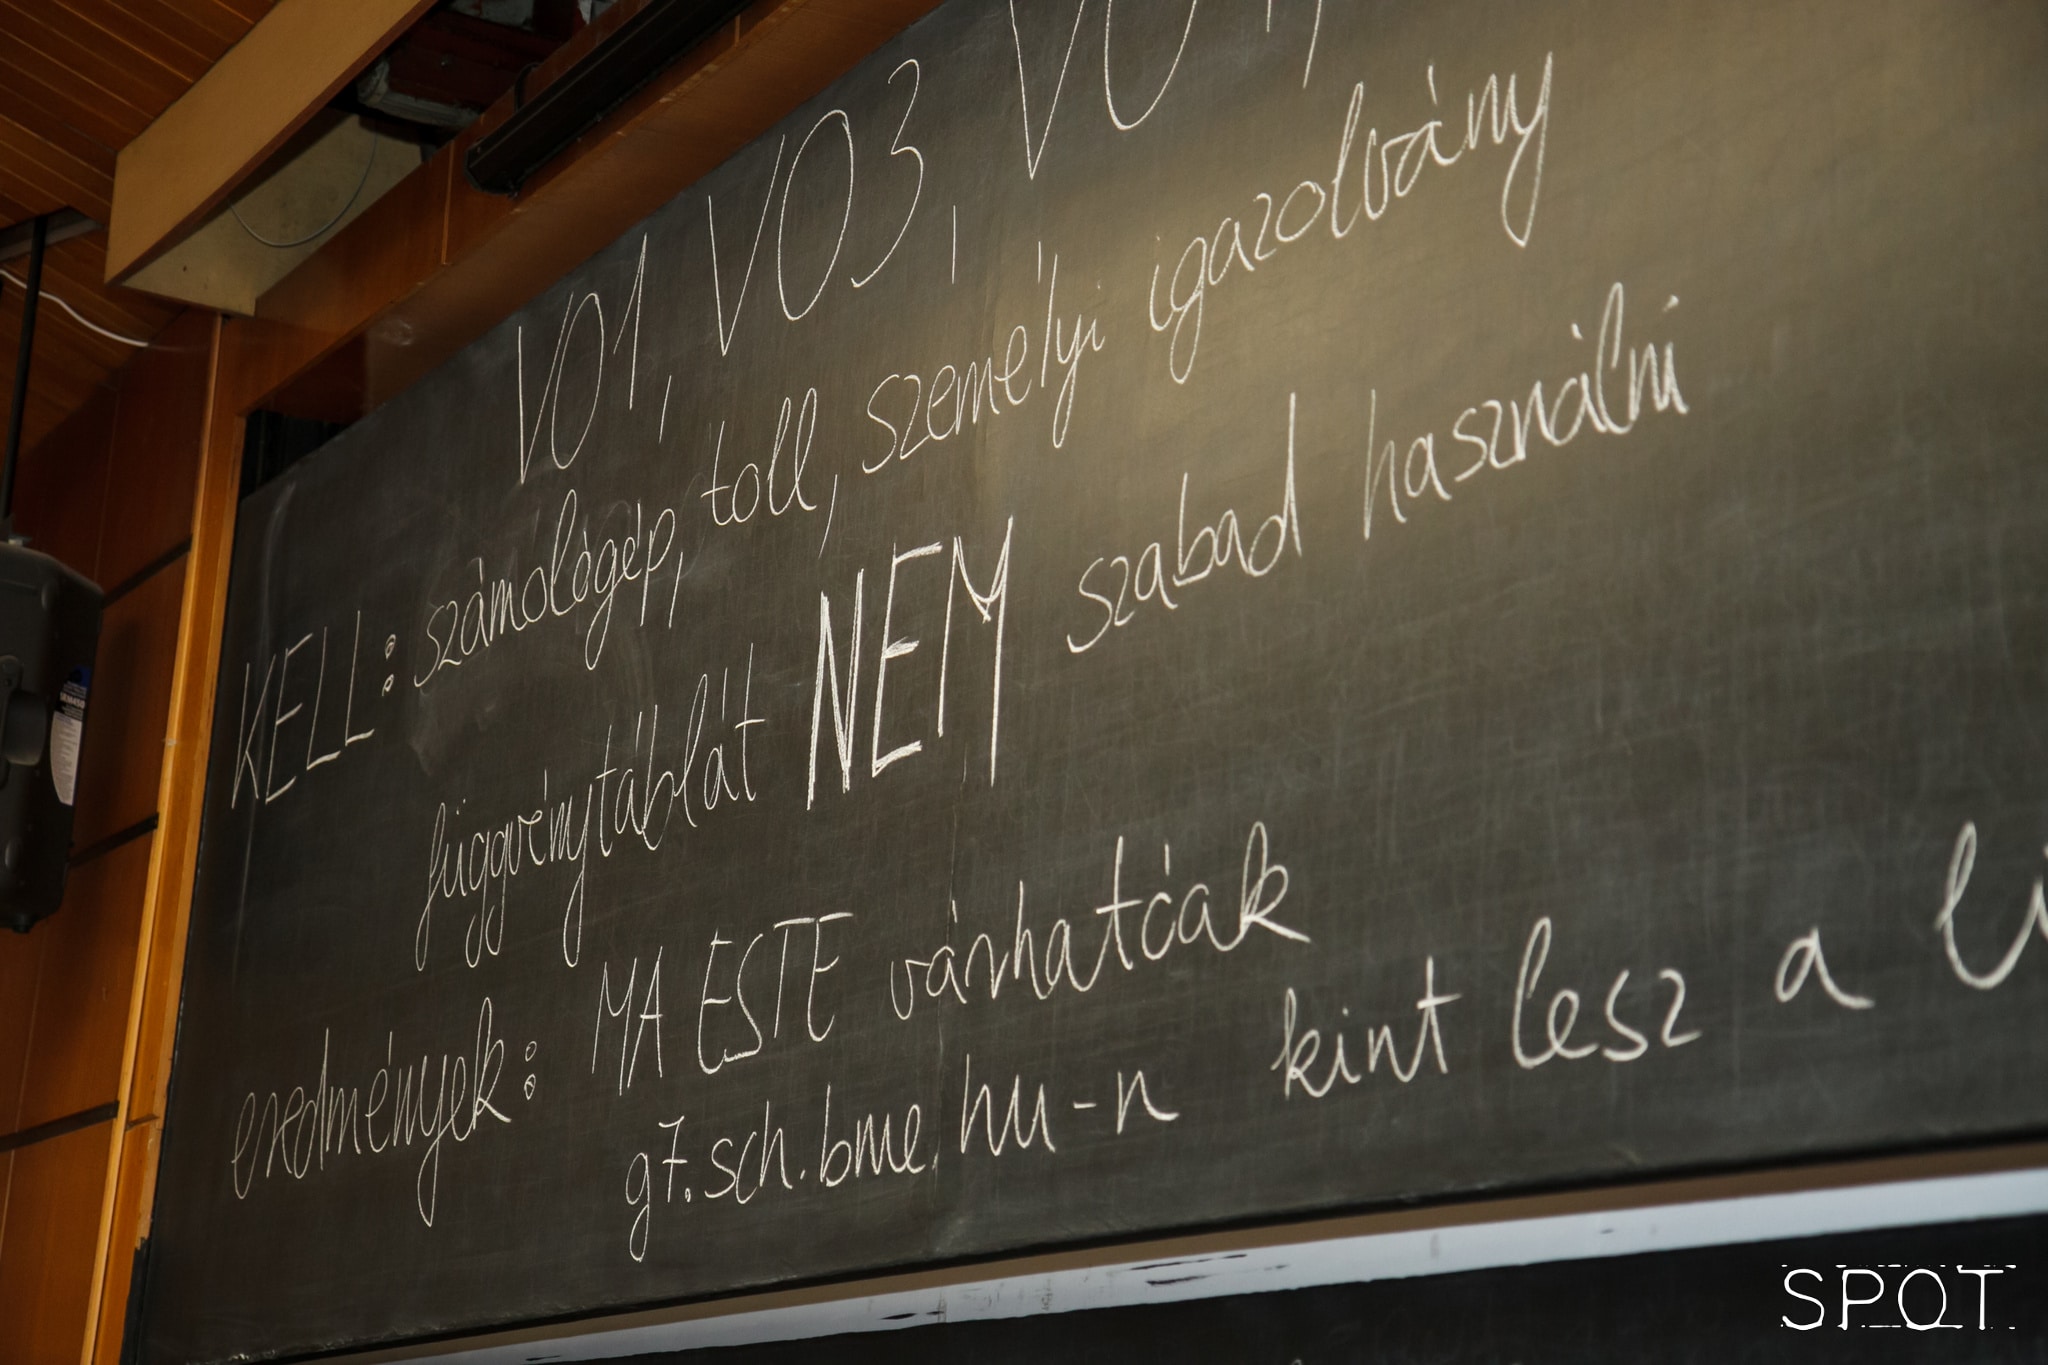 VO1, VO3,
KELL: számológép, toll, személyi igazolvány
függvénytáblát NEM szabad használni
eredmények: MA ESTE várhatóak
g7.sch.bme.hu-n kint lesz a
SPOT